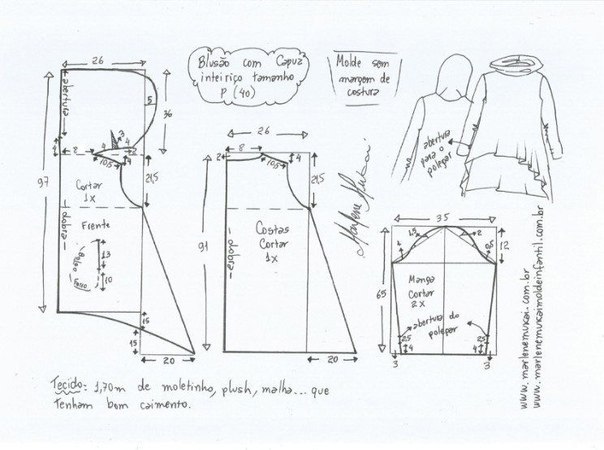 Blusão com Capuz
inteiriço tamanho
P (40)
Molde sem
margem de
costura
26
abertura
5
36
3
4
4
2
1
2
4
10,5
4
97
Cortar
1x
21,5
dobra
Frente
Bolso
13
Faixo
10
15
15
20
26
8
2
10,5
4
21,5
91
Costas
Cortar
1x
dobra
20
Marlene Mukai
abertura
para o
polegar
35
1,5
2
1
2,5
12
65
Manga
Cortar
2x
abertura do
polegar
25
25
4
4
3
3
www.marlenemukai.com.br
www.marlenemukaimoldeinfantil.com.br
Tecido: 1,70m de moletinho, plush, malha... que
Tenham bom caimento.